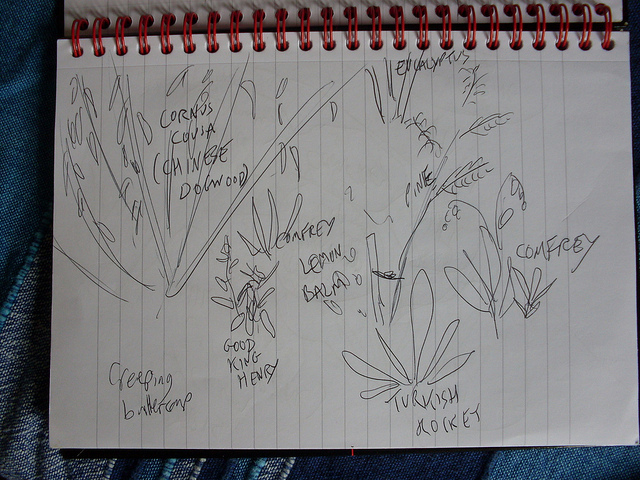 EUCALYPTUS
CORNUS
COUSA
(CHINESE
DOGWOOD)
PINE
COMFREY
COMFREY
LEMON
BALM
GOOD
KING
HENRY
Creeping
buttercup
TURKISH
ROCKET